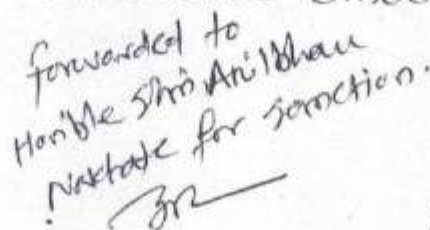 forwarded to
Hon'ble Shri Anilbhau
Naktode for sanction.